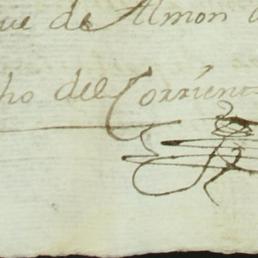 que de Almon
ho del Corrient